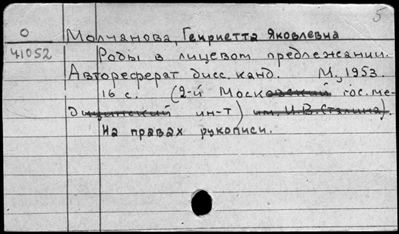 5
О Молчанова, Генриетта Яковлевна
41052 Роды в лицевом предлежании.
Автореферат дисс. канд. М., 1953.
16 с. (2-й Московский гос. ме-
дицинский ин-т) им. И.В. Сталина).
На правах рукописи.